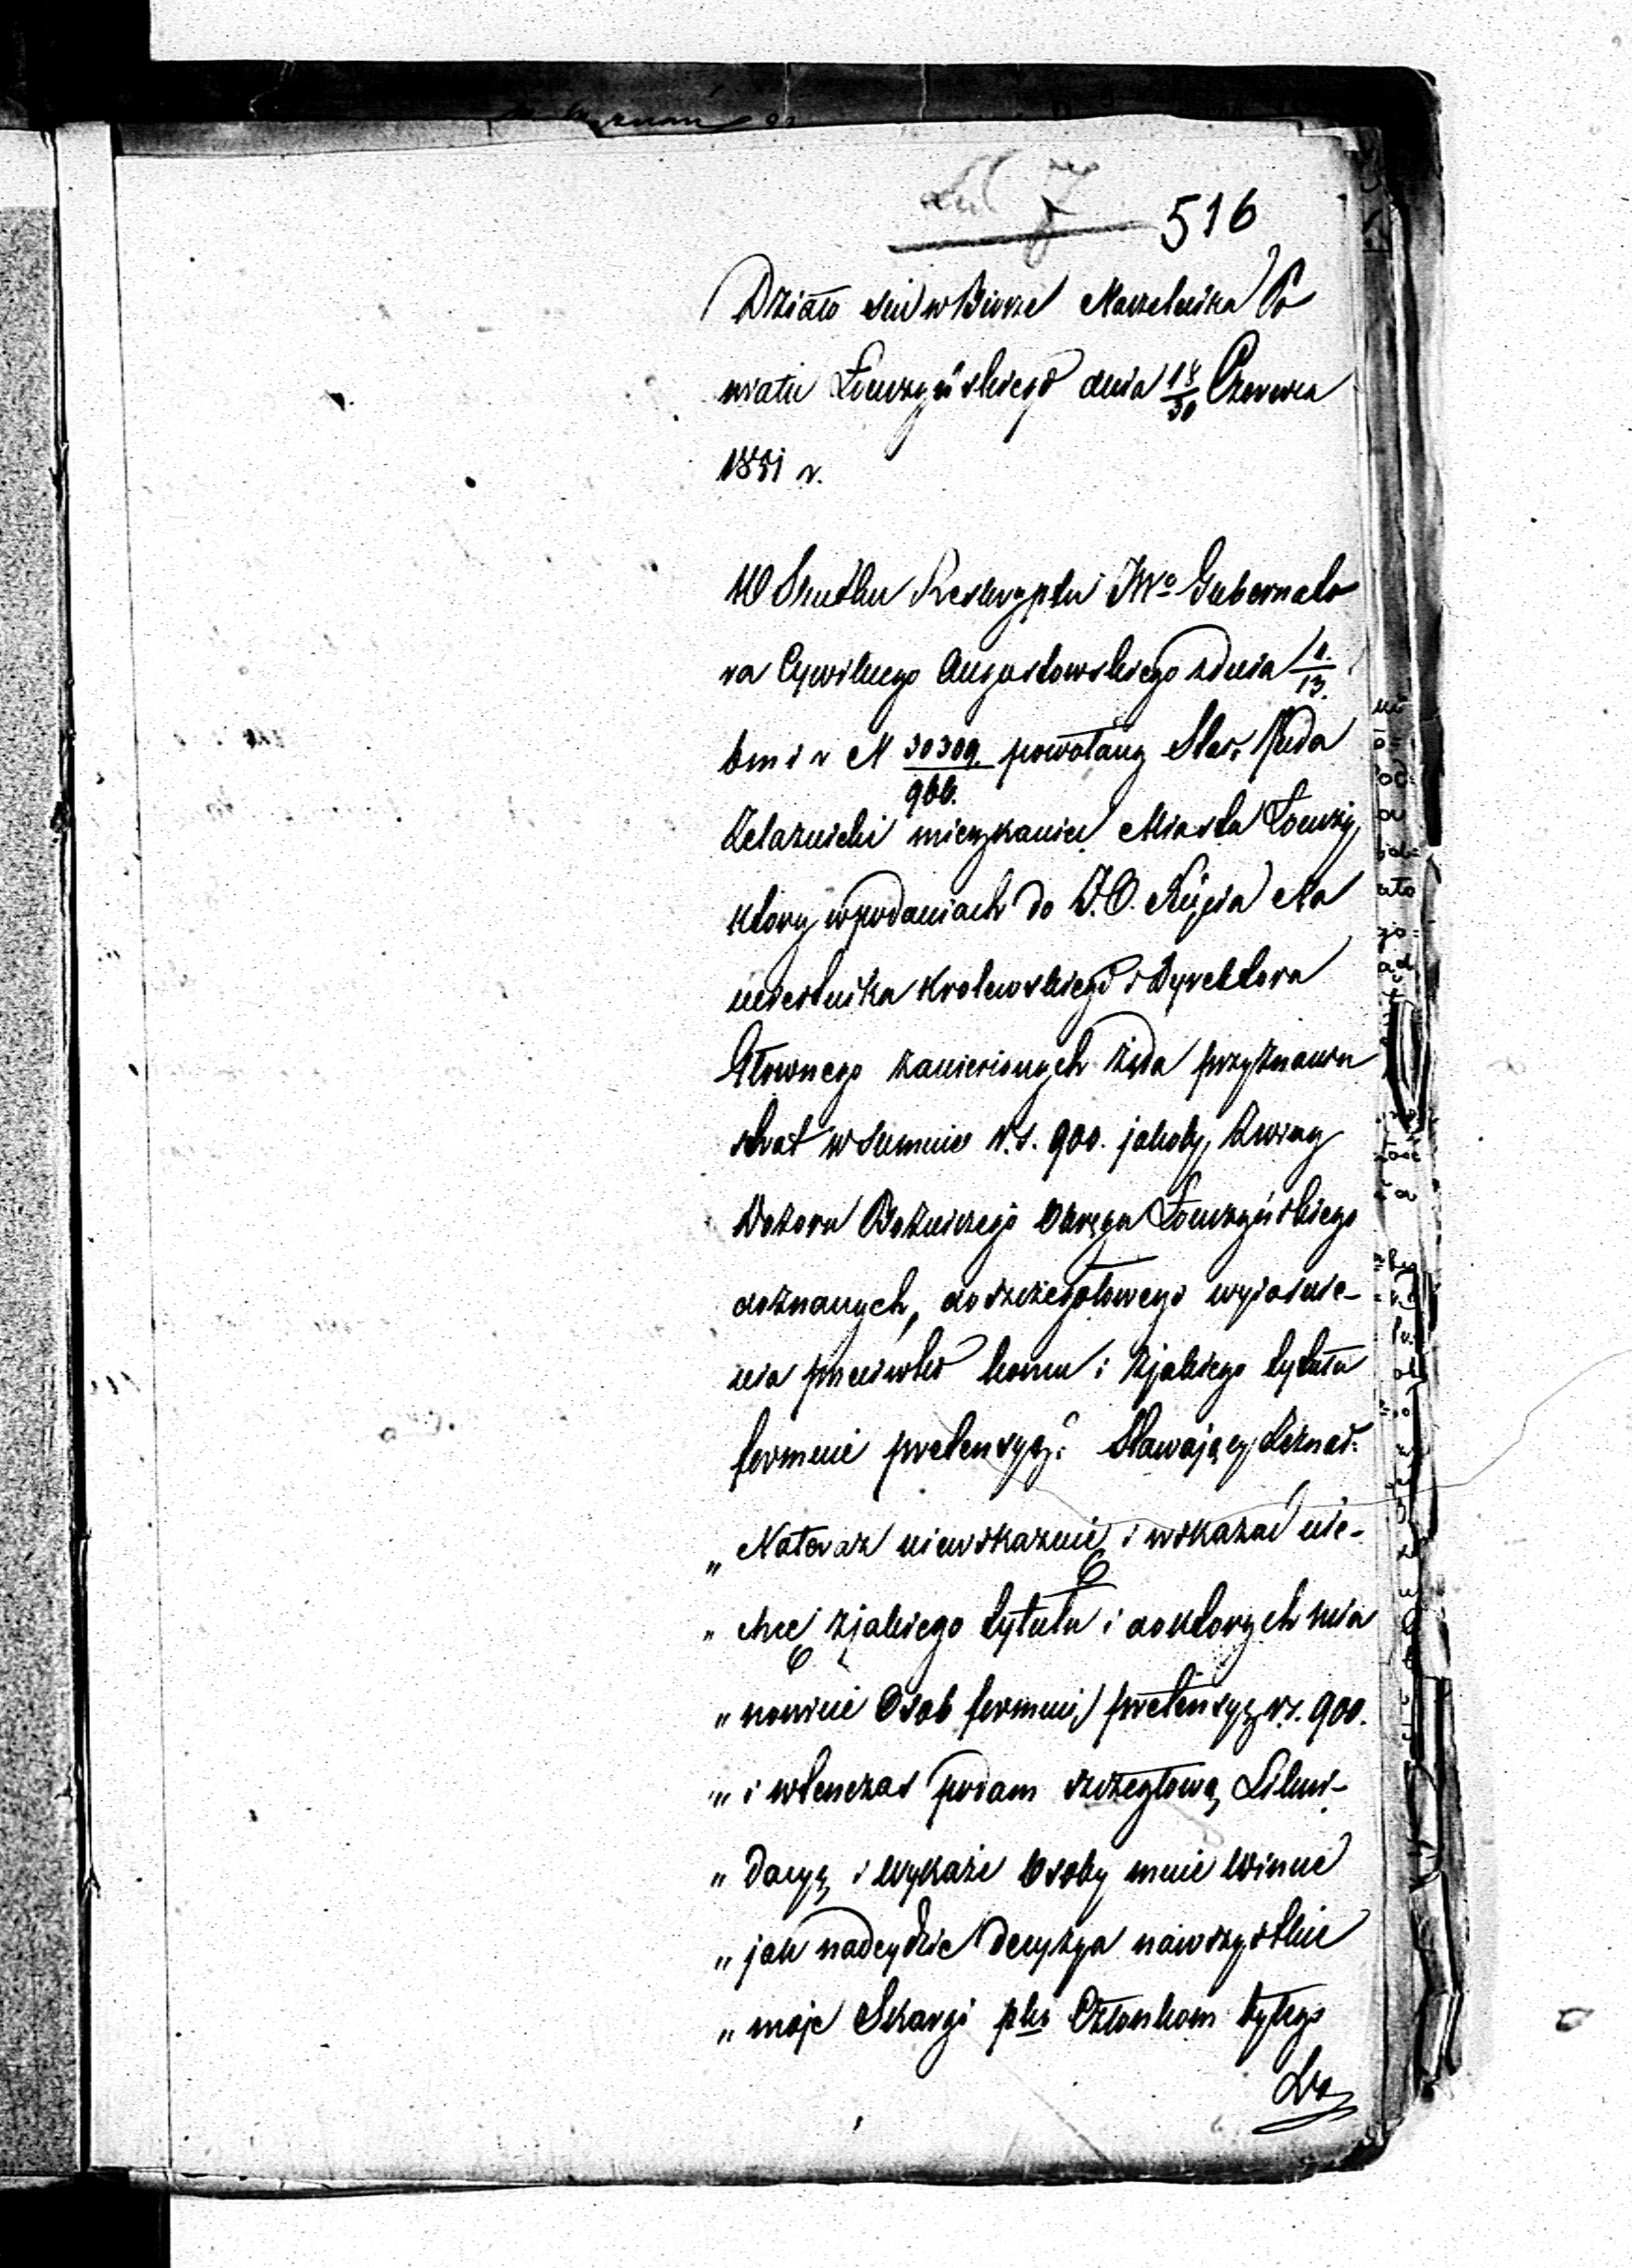 516
Działo się w Biurze Naczelnika Po
wiatu Łomżyńskiego dnia 18/30 Czerwca
1851 r.
W Skutku Reskryptu JWo Gubernato
ra Cywilnego Augustowskiego z dnia 1/13.
b m i r N 30309/966. powołany Star.
Żelaźnicki mieszkaniec Miasta Łomży,
który w podaniach do J.O. Xięcia Na
miestnika Królewskiego i Dyrektora
Głównego zaniesionych żąda przyznania
strat w Summie r.s. 900. jakoby z winy
Dozoru Bożniczego Okręgu Łomżyńskiego
doznanych, do szczegółowego wyjaśnie-
nia przeciwko komu i z jakiego tytułu
formuie pretensyą? Stawający zeznał:
„ Na teraz niewskazuię i wskazać nie-
„ chcę z jakiego tytułu i do których mia
„ nowicie Osób formuię pretensyą r.s. 900.
„ i wtenczas podam szczegłową Likwi-
„ dacyą i wykażę Osoby mnie winne
„ jak nadeydzie decyzya na wszystkie
„ moje Skargi pko Członkom byłego
Do